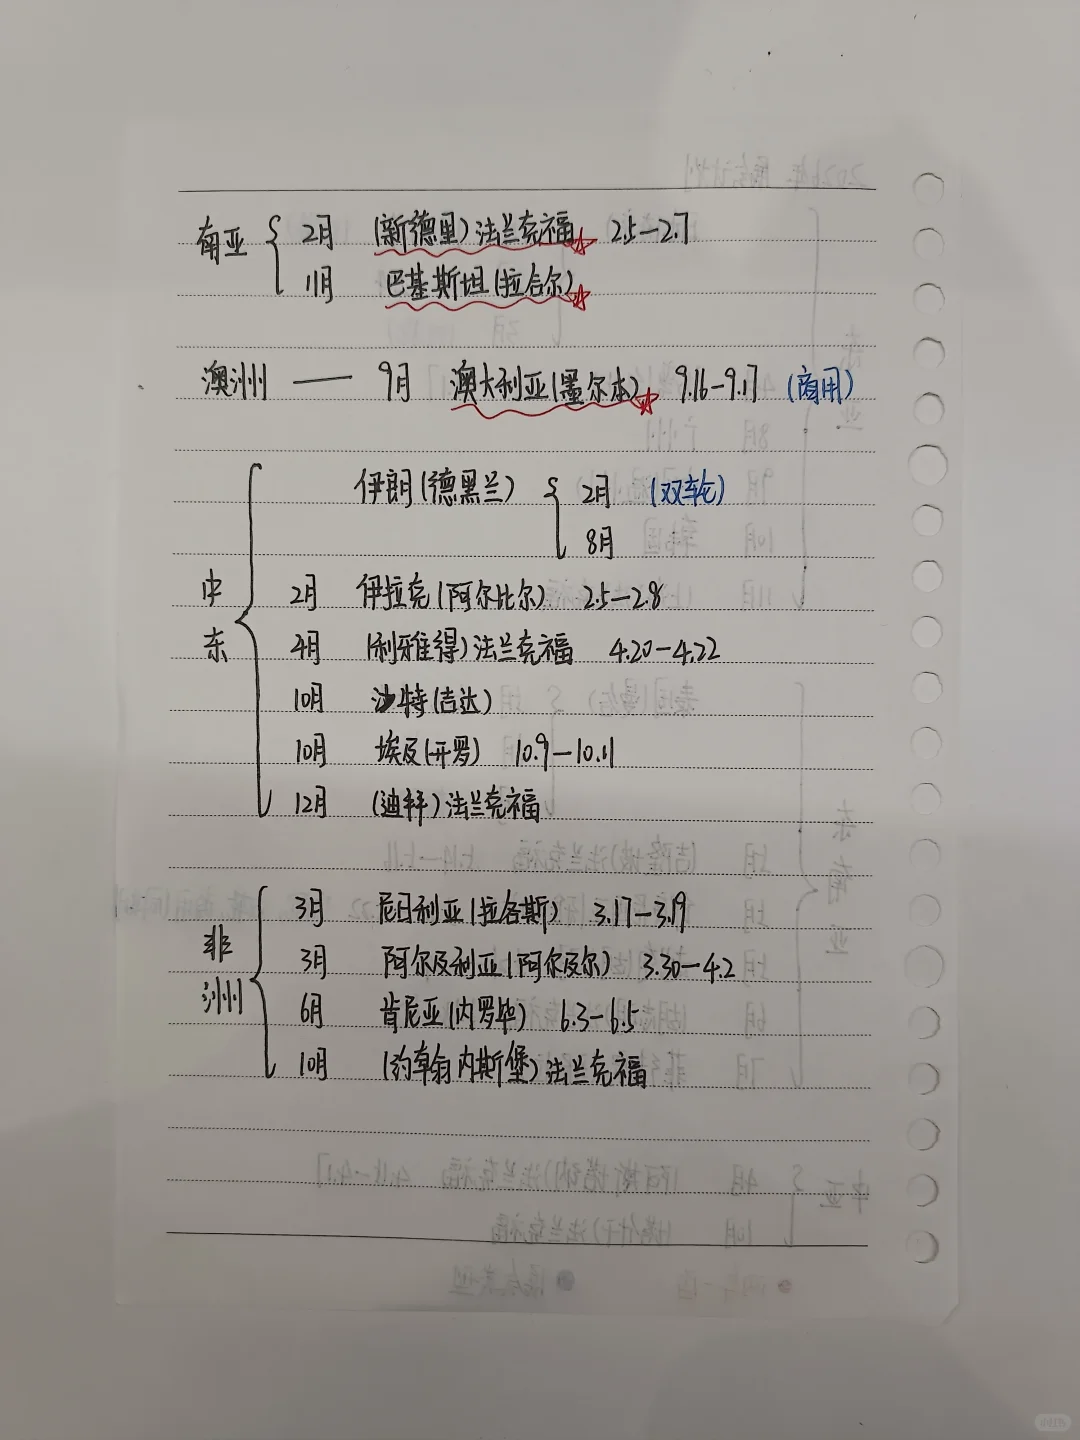 南亚 2月 (新德里)法兰克福 2.5-2.7
11月 巴基斯坦(拉合尔)
澳洲 — 9月 澳大利亚(墨尔本) 9.16-9.17 (商用)
中东
伊朗(德黑兰) 2月 (双轮)
8月
2月 伊拉克(阿尔比尔) 2.5-2.8
4月 (利雅得)法兰克福 4.20-4.22
10月 沙特(吉达)
10月 埃及(开罗) 10.9-10.11
12月 (迪拜)法兰克福
非洲
3月 尼日利亚(拉各斯) 3.17-3.19
3月 阿尔及利亚(阿尔及尔) 3.30-4.2
6月 肯尼亚(内罗毕) 6.3-6.5
10月 (约翰内斯堡)法兰克福
小红书